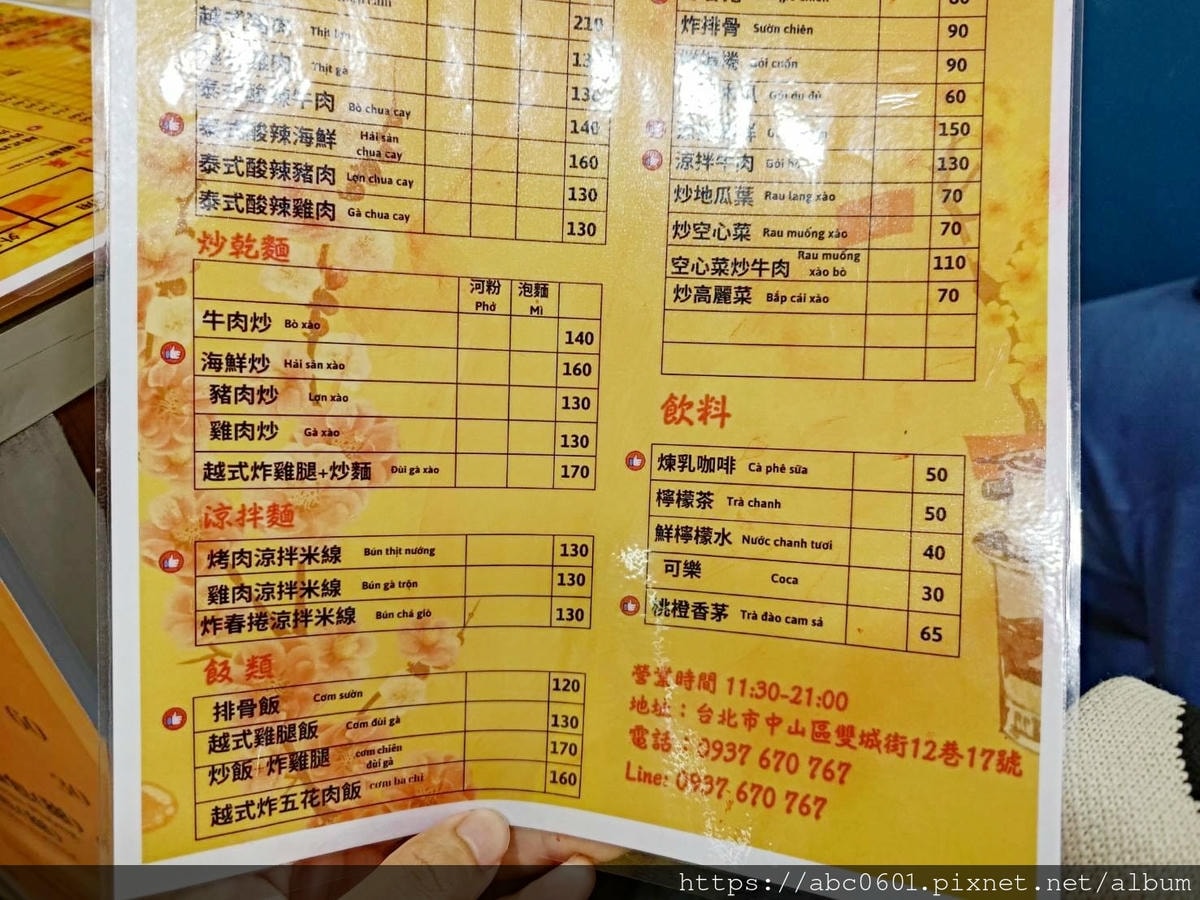 210
Thịt gà
泰式酸辣牛肉 Bò chua cay
泰式酸辣海鮮 Hải sản chua cay 140
泰式酸辣豬肉 Lợn chua cay 160
泰式酸辣雞肉 Gà chua cay 130
130
炒乾麵
河粉 泡麵
Phở Mì
牛肉炒 Bò xào 140
海鮮炒 Hải sản xào 160
豬肉炒 Lợn xào 130
雞肉炒 Gà xào 130
越式炸雞腿+炒麵 Đùi gà xào 170
涼拌麵
烤肉涼拌米線 Bún thịt nướng 130
雞肉涼拌米線 Bún gà trộn 130
炸春捲涼拌米線 Bún chả giò 130
飯類
排骨飯 Cơm sườn 120
越式雞腿飯 Cơm đùi gà 130
炒飯+炸雞腿 cơm chiên đùi gà 170
越式炸五花肉飯 cơm ba chỉ 160
炸排骨 Sườn chiên 90
Gỏi cuốn 90
Gỏi đu đủ 60
150
涼拌牛肉 130
炒地瓜葉 Rau lang xào 70
炒空心菜 Rau muống xào 70
空心菜炒牛肉 Rau muống xào bò 110
炒高麗菜 Bắp cải xào 70
飲料
煉乳咖啡 Cà phê sữa 50
檸檬茶 Trà chanh 50
鮮檸檬水 Nước chanh tươi 40
可樂 Coca 30
桃橙香茅 Trà đào cam sả 65
營業時間 11:30-21:00
地址：台北市中山區雙城街12巷17號
電話：0937 670 767
Line: 0937 670 767
https://abc0601.pixnet.net/album